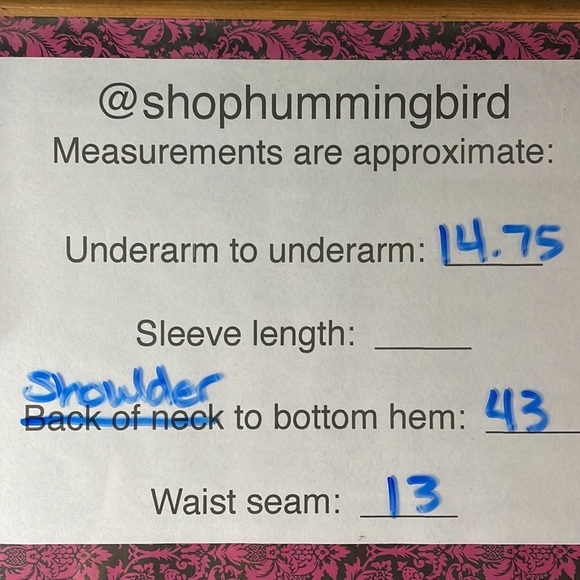 @shophummingbird
Measurements are approximate:
Underarm to underarm: 14.75
Sleeve length:
Shoulder
Back of neck to bottom hem: 43
Waist seam: 13